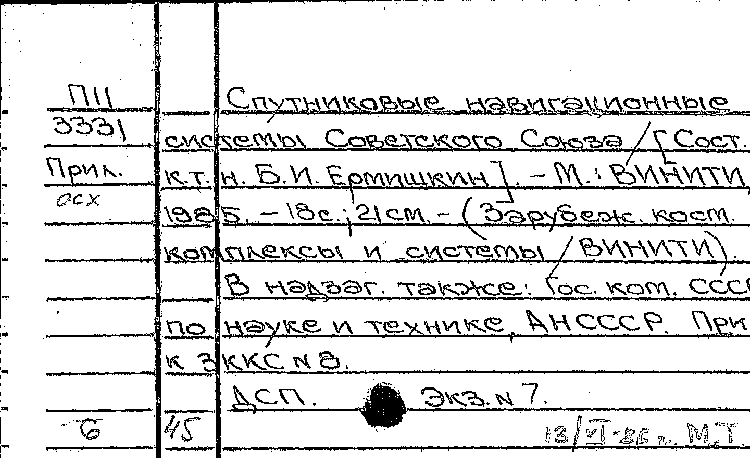 П11 Спутниковые навигационные
3331 системы Советского Союза / [Сост.
Прил. к.т.н. Б.И. Ермишкин]. – М.: ВИНИТИ,
осх 1985. – 18 с.; 21 см. – (Зарубеж. косм.
комплексы и системы / ВИНИТИ).
В надзаг. также: Гос. ком. СССР
по науке и технике, АН СССР. Прил
к ЗККС N 8.
ДСП. Экз. N 7.
6 45 13/VI-86 г. М.Т.